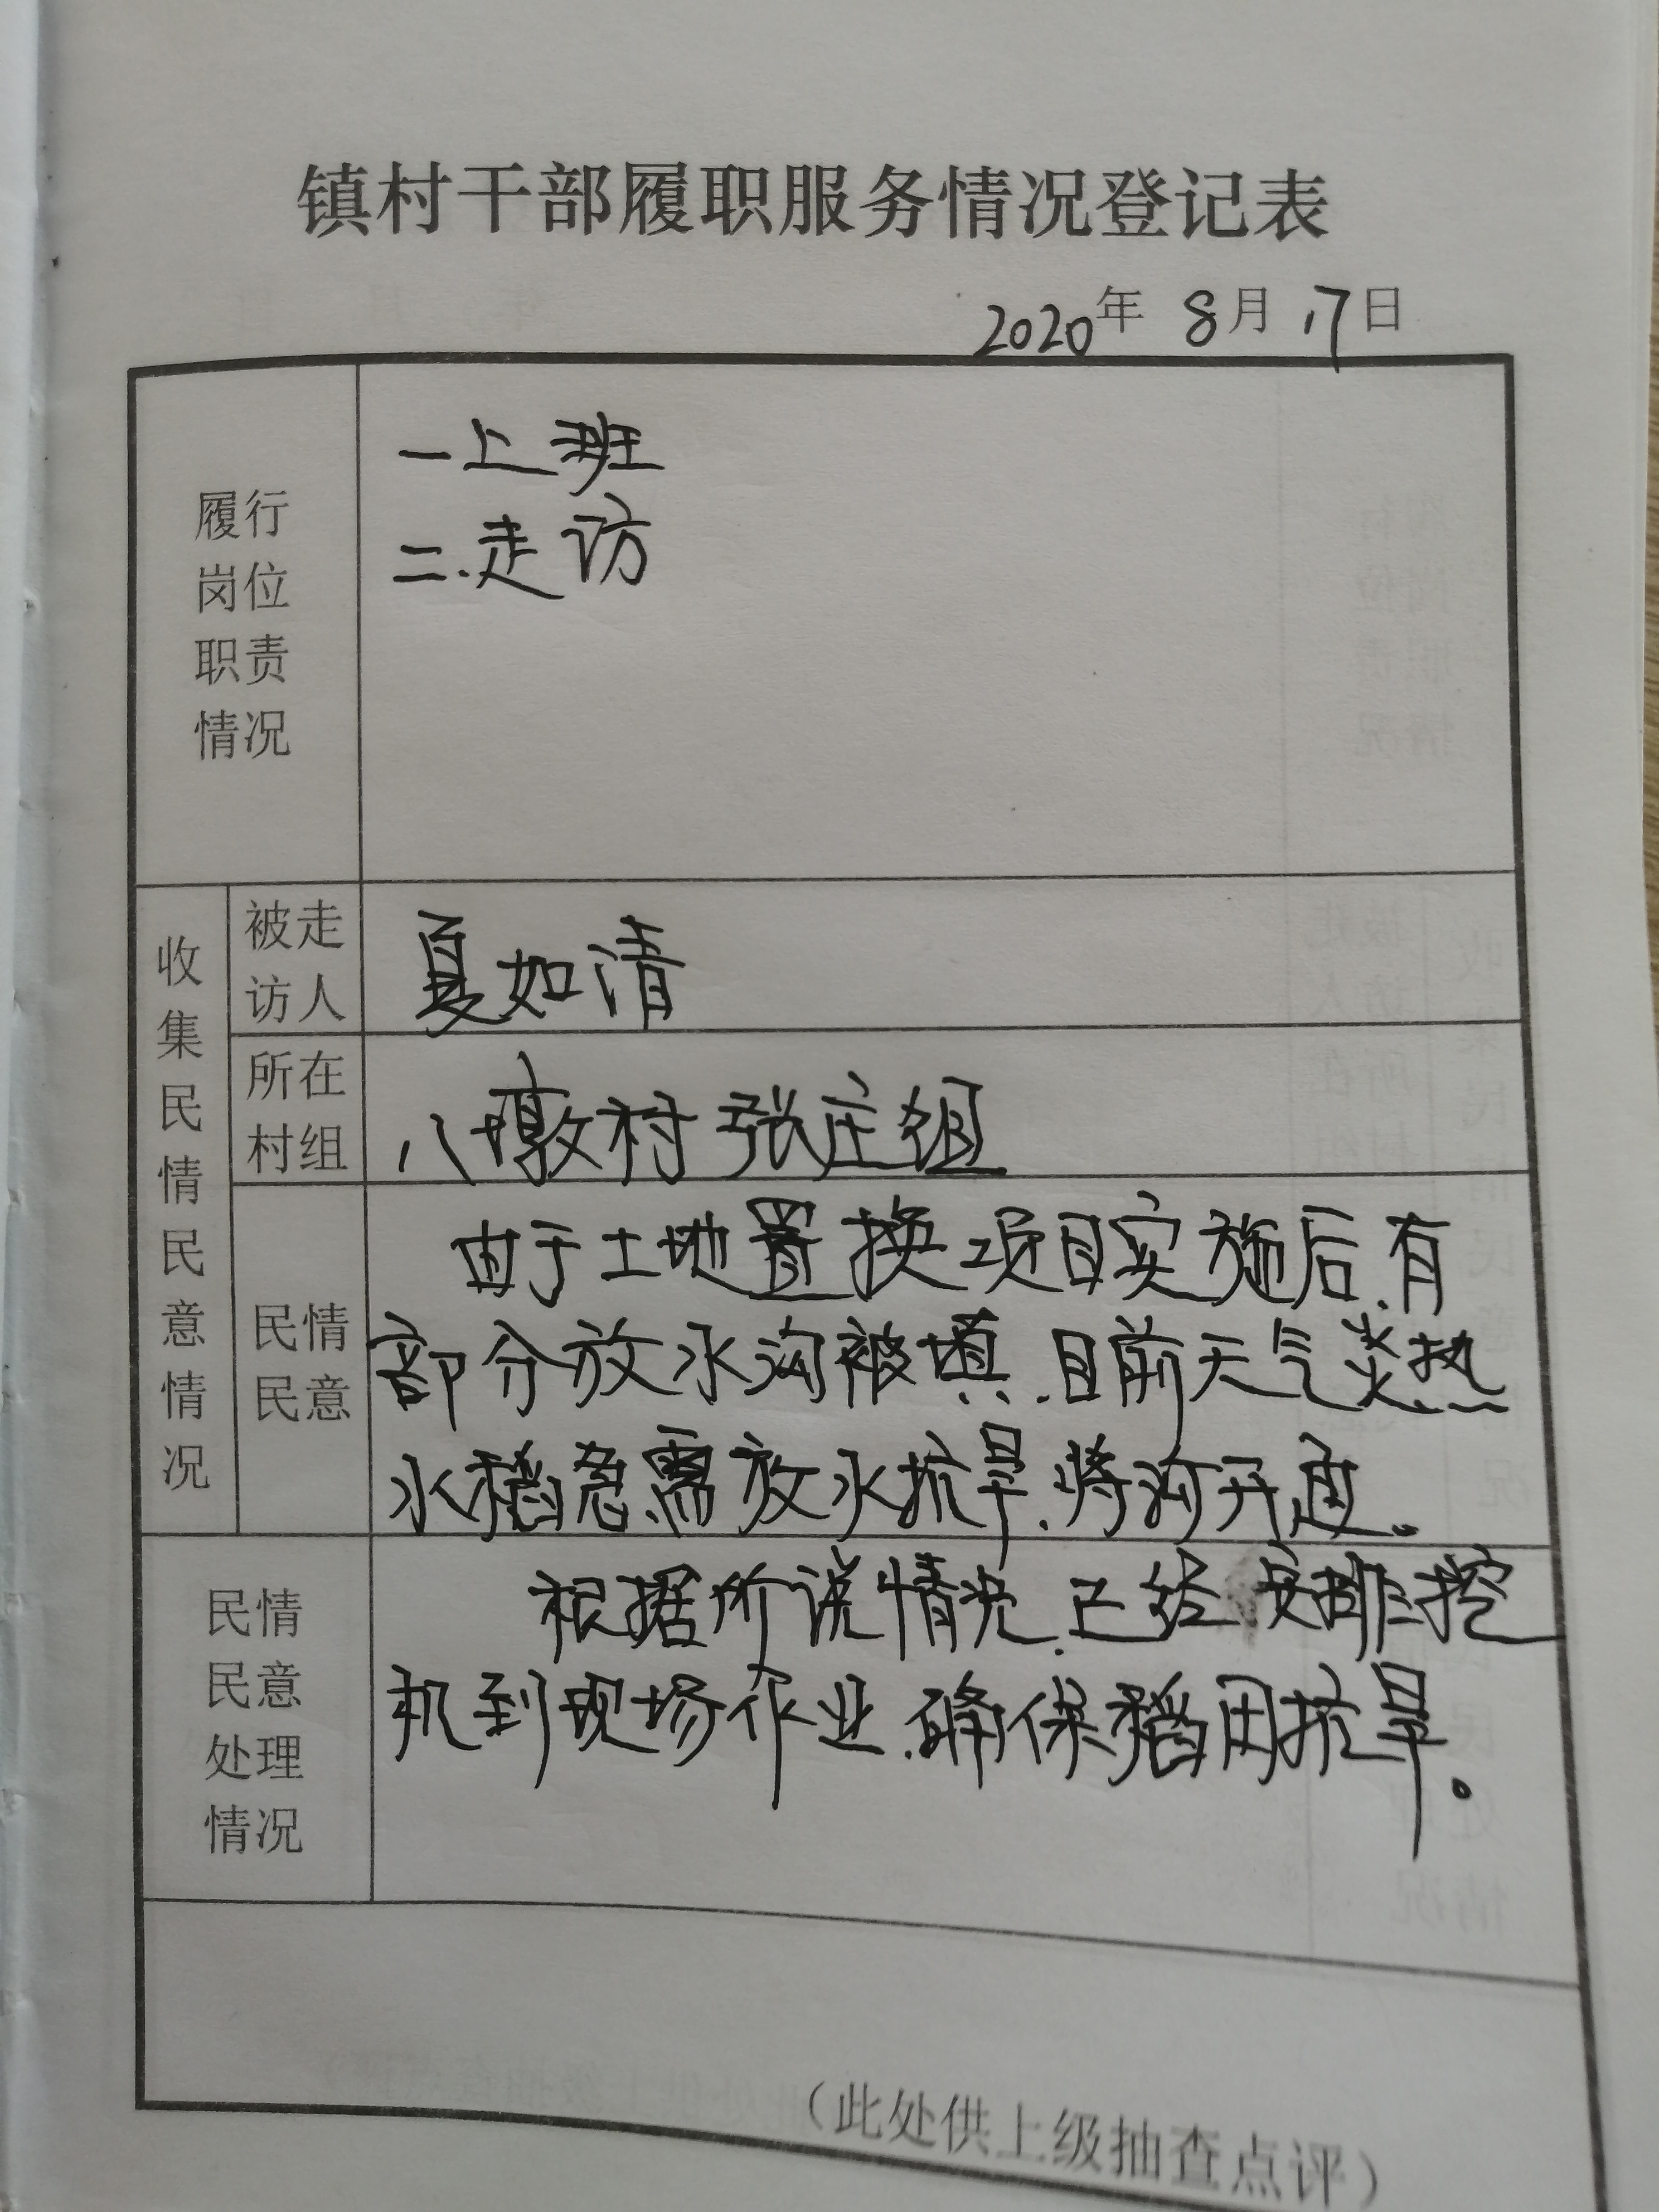 镇村干部履职服务情况登记表
2020年 8月 17日
履行
岗位
职责
情况
一上班
二.走访
收集民情民意情况
被走
访人
夏如清
所在
村组
八墩村张庄组
民情
民意
由于土地置换项目实施后.有
部分放水沟被填.目前天气炎热
水稻急需放水抗旱.将沟开通。
民情
民意
处理
情况
根据所说情况.已经安排挖
机到现场作业.确保稻田抗旱。
（此处供上级抽查点评）